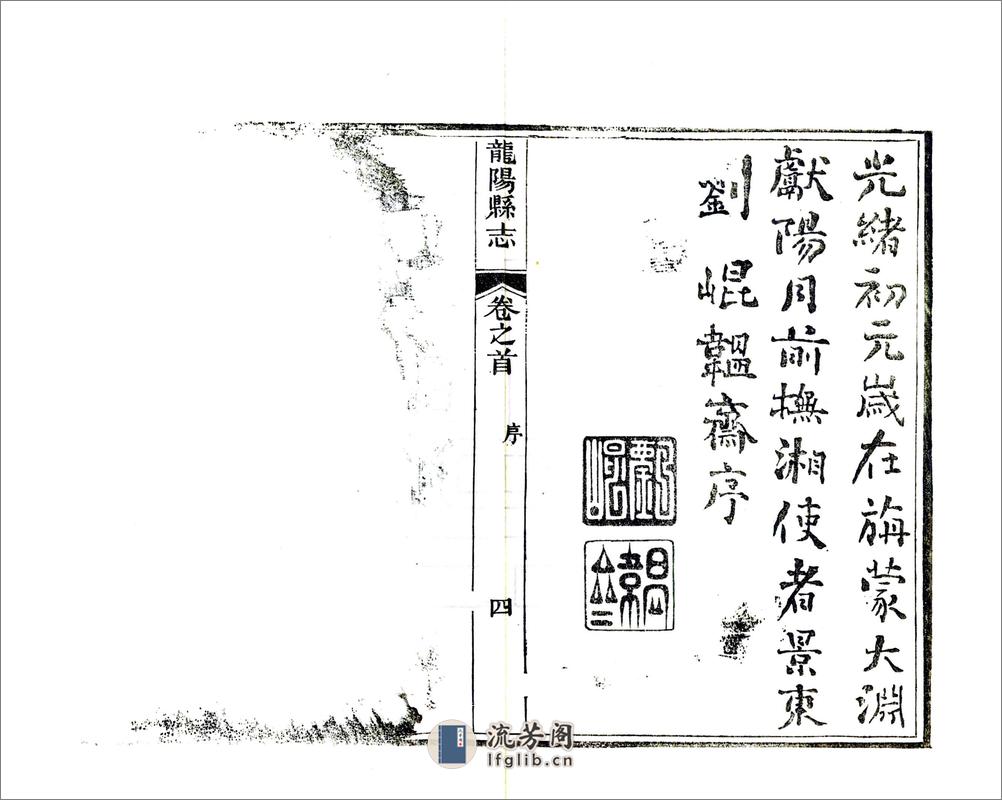 光緒初元歲在旃蒙大淵
獻陽月前撫湘使者景東
劉崐韞齋序
劉崐
韞齋
龍陽縣志
卷之首
序
四
流芳阁
lfglib.cn